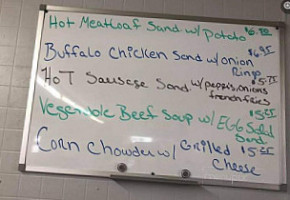 Hot Meatloaf Sand w/ Potato
Buffalo Chicken Sand w/onion
Rings
HoT Sausage Sand w/ peppers, onions
french fries
Vegetable Beef Soup w/ Egg Salad
Sand
Corn Chowder w/ Grilled
Cheese